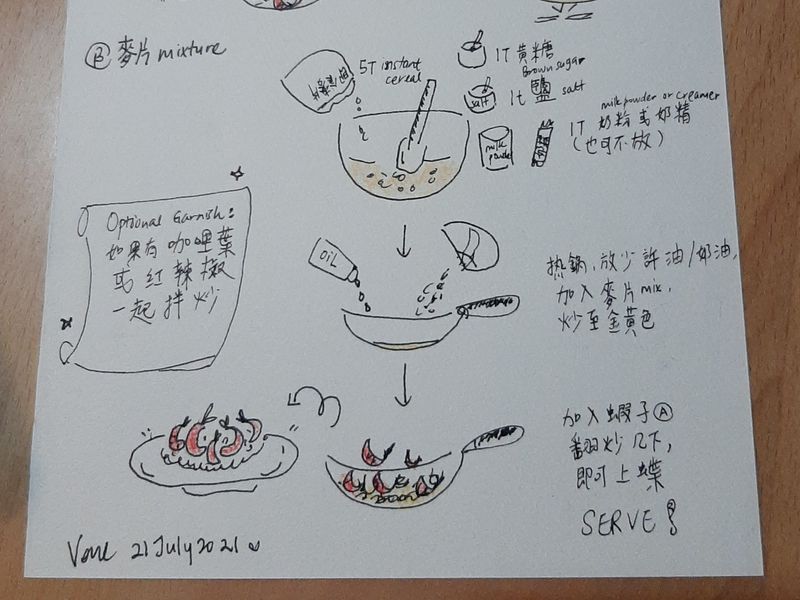 Ⓑ 麥片 mixture
5T instant
cereal
即食麥片
1T 黃糖
Brown sugar
salt
1t 鹽 salt
milk powder or creamer
1T 奶粉 或 奶精
(也可不放)
milk
powder
Optional Garnish:
如果有 咖哩葉
或 紅辣椒
一起拌炒
OIL
热鍋,放少許油/奶油,
加入麥片 mix,
炒至金黃色
加入蝦子Ⓐ
翻炒几下,
即可上蝶
SERVE!
21 July 2021